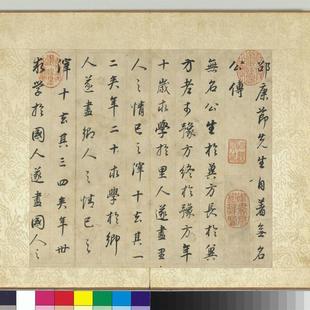 邵康節先生自著無名
公傳
無名公生於冀方長於冀
方老於豫方終於豫方年
十歲求學於里人遂盡里
人之情己之滓十去其一
二矣年二十求學於鄉
人遂盡鄉人之情己之
滓十去其三四矣年卅
求學於國人遂盡國人之